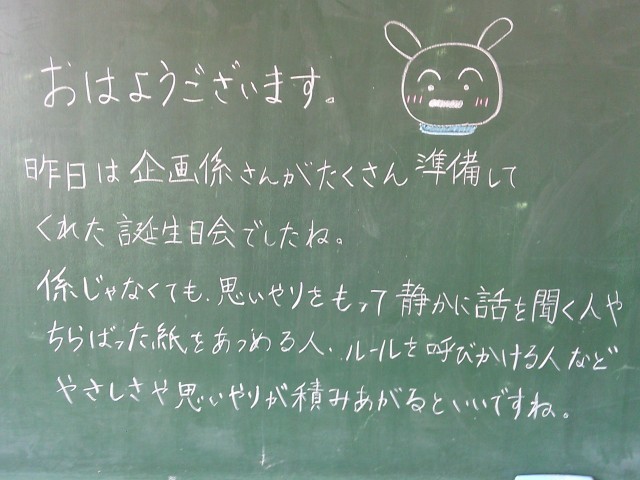 おはようございます。
昨日は企画係さんがたくさん準備して
くれた誕生日会でしたね。
係じゃなくても、思いやりをもって静かに話を聞く人や
ちらばった紙をあつめる人、ルールを呼びかける人など
やさしさや思いやりが積みあがるといいですね。